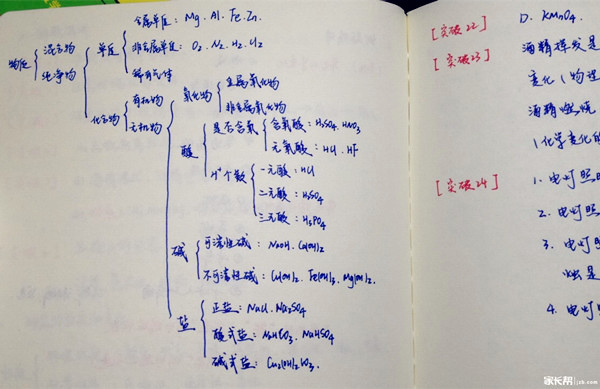 金属单质：Mg、Al、Fe、Zn.
物质 混合物 单质 非金属单质：O2、N2、H2、Cl2
纯净物 稀有气体
有机物 氧化物 金属氧化物
化合物 无机物 非金属氧化物
酸 是否含氧 含氧酸：H2SO4、HNO3
无氧酸：HCl、HF
H+个数 一元酸：HCl
二元酸：H2SO4
三元酸：H3PO4
碱 可溶性碱：NaOH、Ca(OH)2
不可溶性碱：Cu(OH)2、Fe(OH)3、Mg(OH)2.
盐 正盐：NaCl、Na2SO4
酸式盐：NaHCO3、NaHSO4
碱式盐：Cu2(OH)2CO3.
D. KMnO4.
[突破22]
酒精挥发是
[突破23]
变化（物理
酒精燃烧
（化学变化的
[突破24] 1. 电灯照明
2. 电灯
3. 电灯
烛是
4. 电灯
家长帮 jzb.com